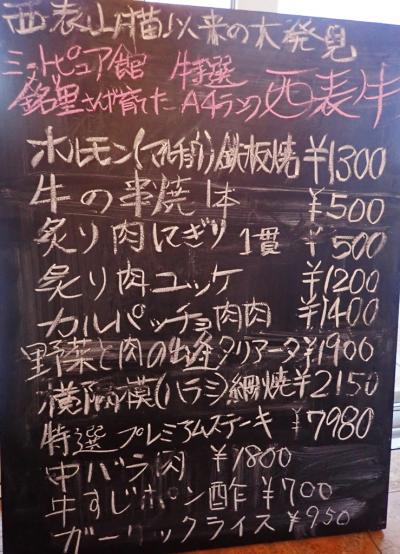 西表山猫以来の大発見
ミートピュア館 特選
銘里さんが育てたA4ランク西表牛
ホルモン(マルチョウ)鉄板焼 ¥1300
牛の串焼1本 ¥500
炙り肉にぎり 1貫 ¥500
炙り肉ユッケ ¥1200
カルパッチョ肉肉 ¥1400
野菜と肉の出逢タリアータ ¥1900
横隔模(ハラシ)網焼 ¥2150
特選プレミアムステーキ ¥7980
中バラ肉 ¥1800
牛すじポン酢 ¥700
ガーリックライス ¥950